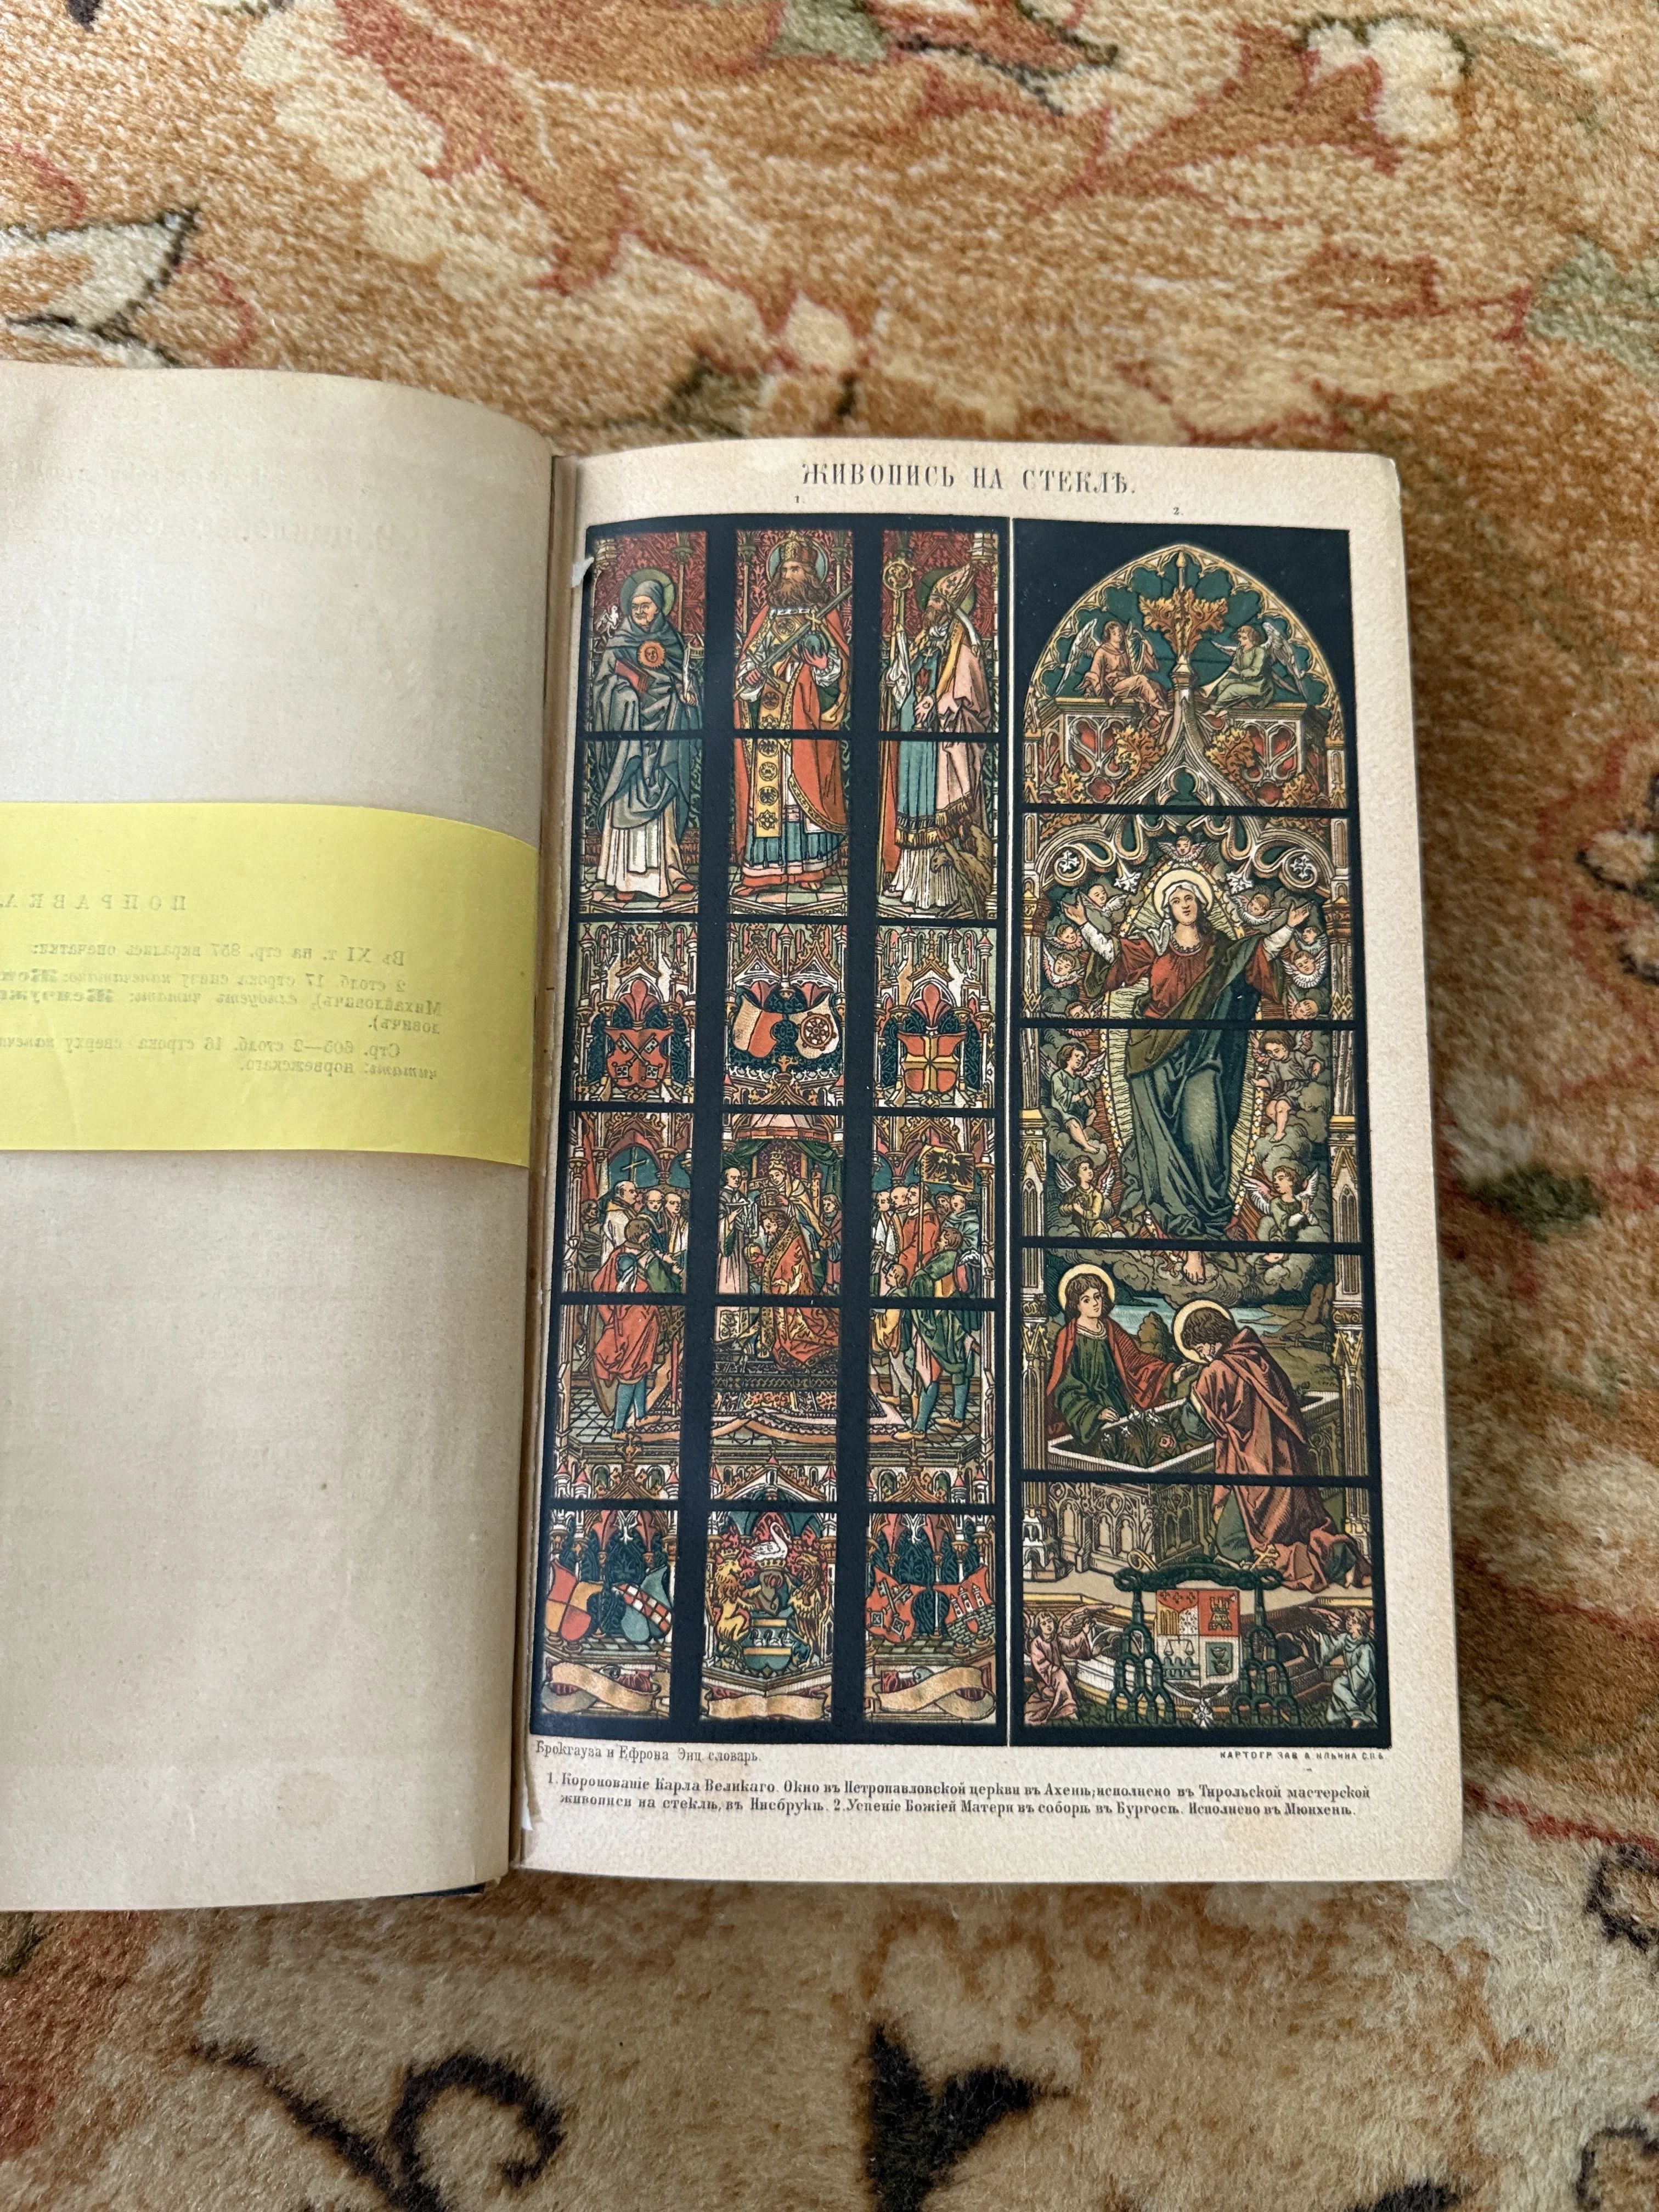 ПОПРАВКА.
Въ XI т. на стр. 857 вкралась опечатка:
2 столб. 17 строка снизу напечатано:
Михайловичъ), слѣдуетъ читать: Жемчуж
ловичъ).
Стр. 605—2 столб. 16 строка сверху
читать: норвежскаго.
ЖИВОПИСЬ НА СТЕКЛѢ.
1.
2.
Брокгауза и Ефрона Энц. словарь.
КАРТОГР. ЗАВ. А. ИЛЬИНА С.П.Б.
1. Коронованіе Карла Великаго. Окно въ Петропавловской церкви въ Ахенѣ; исполнено въ Тирольской мастерской
живописи на стеклѣ, въ Инсбрукѣ. 2. Успеніе Божіей Матери въ соборѣ въ Бургосѣ. Исполнено въ Мюнхенѣ.